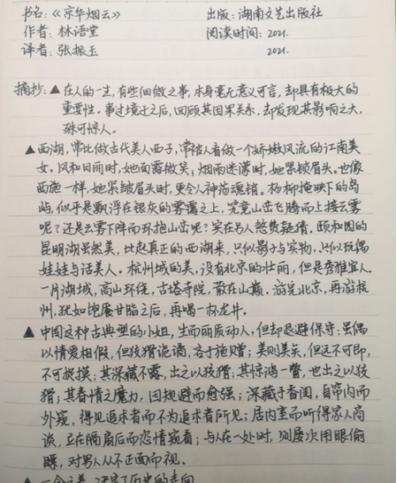 书名：《京华烟云》 出版：湖南文艺出版社
作者：林语堂 阅读时间：2021.
译者：张振玉 2021.
摘抄：▲在人的一生，有些细微之事，本身毫无意义可言，却具有极大的
重要性。事过境迁之后，回顾其因果关系，却发现其影响之大，
殊可惊人。
▲西湖，常比做古代美人西子，常被人看做一个娇嫩风流的江南美
女。风和日丽时，她面露微笑；烟雨迷濛时，她紧皱眉头。也像
西施一样，她紧皱眉头时，更令人神荡魂销。杨柳掩映下的岛
屿，似乎是飘浮在银灰的雾霭之上，究竟山峦飞腾而上接云雾
呢？还是云雾下降而环抱山峦呢？实在易人煞费疑猜，颐和园的
昆明湖虽然美，比起真正的西湖来，只似影子与实物，只似玩偶
娃娃与活美人。杭州城的美，没有北京的壮丽，但是秀雅宜人。
一片湖域，高山环绕，古塔寺院，散在山巅。游览北京，再游杭
州，犹如饱餐甘脂之后，再喝一杯龙井。
▲中国这种古典型的小姐，生而丽质动人，但却隐避保守：虽偶
以情爱相假，但狡猾诡谲，吝于施赠；美则美矣，但还不可即，
不可捉摸；其深藏不露，出之以狡猾；其惊鸿一瞥，也出之以狡
猾；其春情之魔力，因规避而愈强；深藏于香闺，自帘内而
外窥，得见追求者而不为追求者所见；居内室而听得家人商
谈，立在隔扇后而恣情窥看；与人在一处时，则屡次用眼偷
瞟，对男人从不正面而视。
▲一个之美，决定了历史的走向